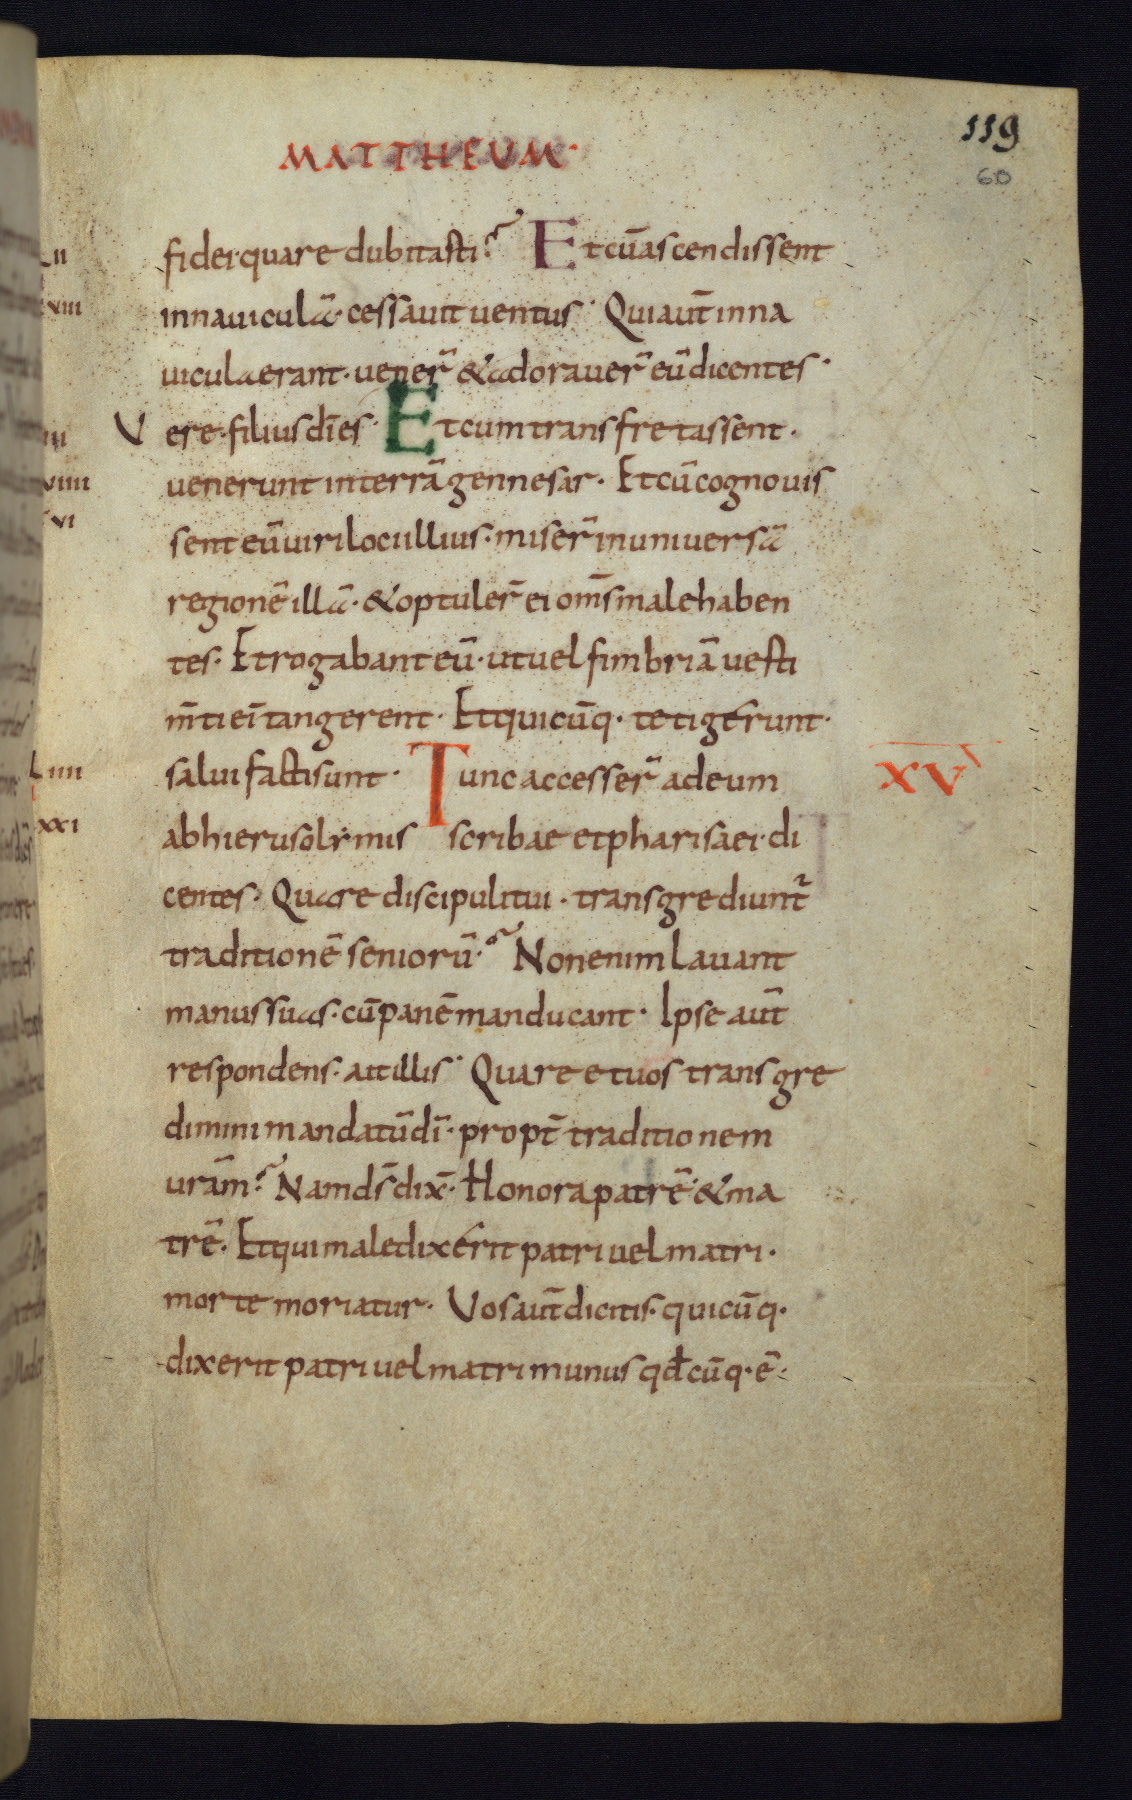 MATTHEUM·
119
60
fidei quare dubitasti? Et cū ascendissent
in nauiculā· cessauit uentus· Qui aut̄ in na
uicula erant· uener̄ & adorauer̄ eū dicentes·
Vere· filius dī es· Et cum transfretassent·
uenerunt in terrā gennesar· Et cū cognouis
sent eū uiri loci illius· miser̄ in uniuersā
regionē illā· & optuler̄ ei om̄s male haben
tes· Et rogabant eū· ut uel fimbriā uesti
m̄ti ei tangerent· Et quicūq· tetigerunt·
salui facti sunt· Tunc accesser̄ ad eum
XV
ab hierusolymis scribae et pharisaei· di
centes· Quare discipuli tui· transgrediunt̄
traditionē seniorū? Non enim lauant
manus suas· cū panē manducant· Ipse aut̄
respondens· ait illis· Quare et uos transgre
dimini mandatū dī· propt̄ traditionem
urām? Nam ds̄ dix̄· Honora patrē· & ma
trē· Et qui maledixerit patri uel matri·
morte moriatur· Vos aut̄ dicitis· quicūq·
dixerit patri uel matri munus qđcūq· ē·